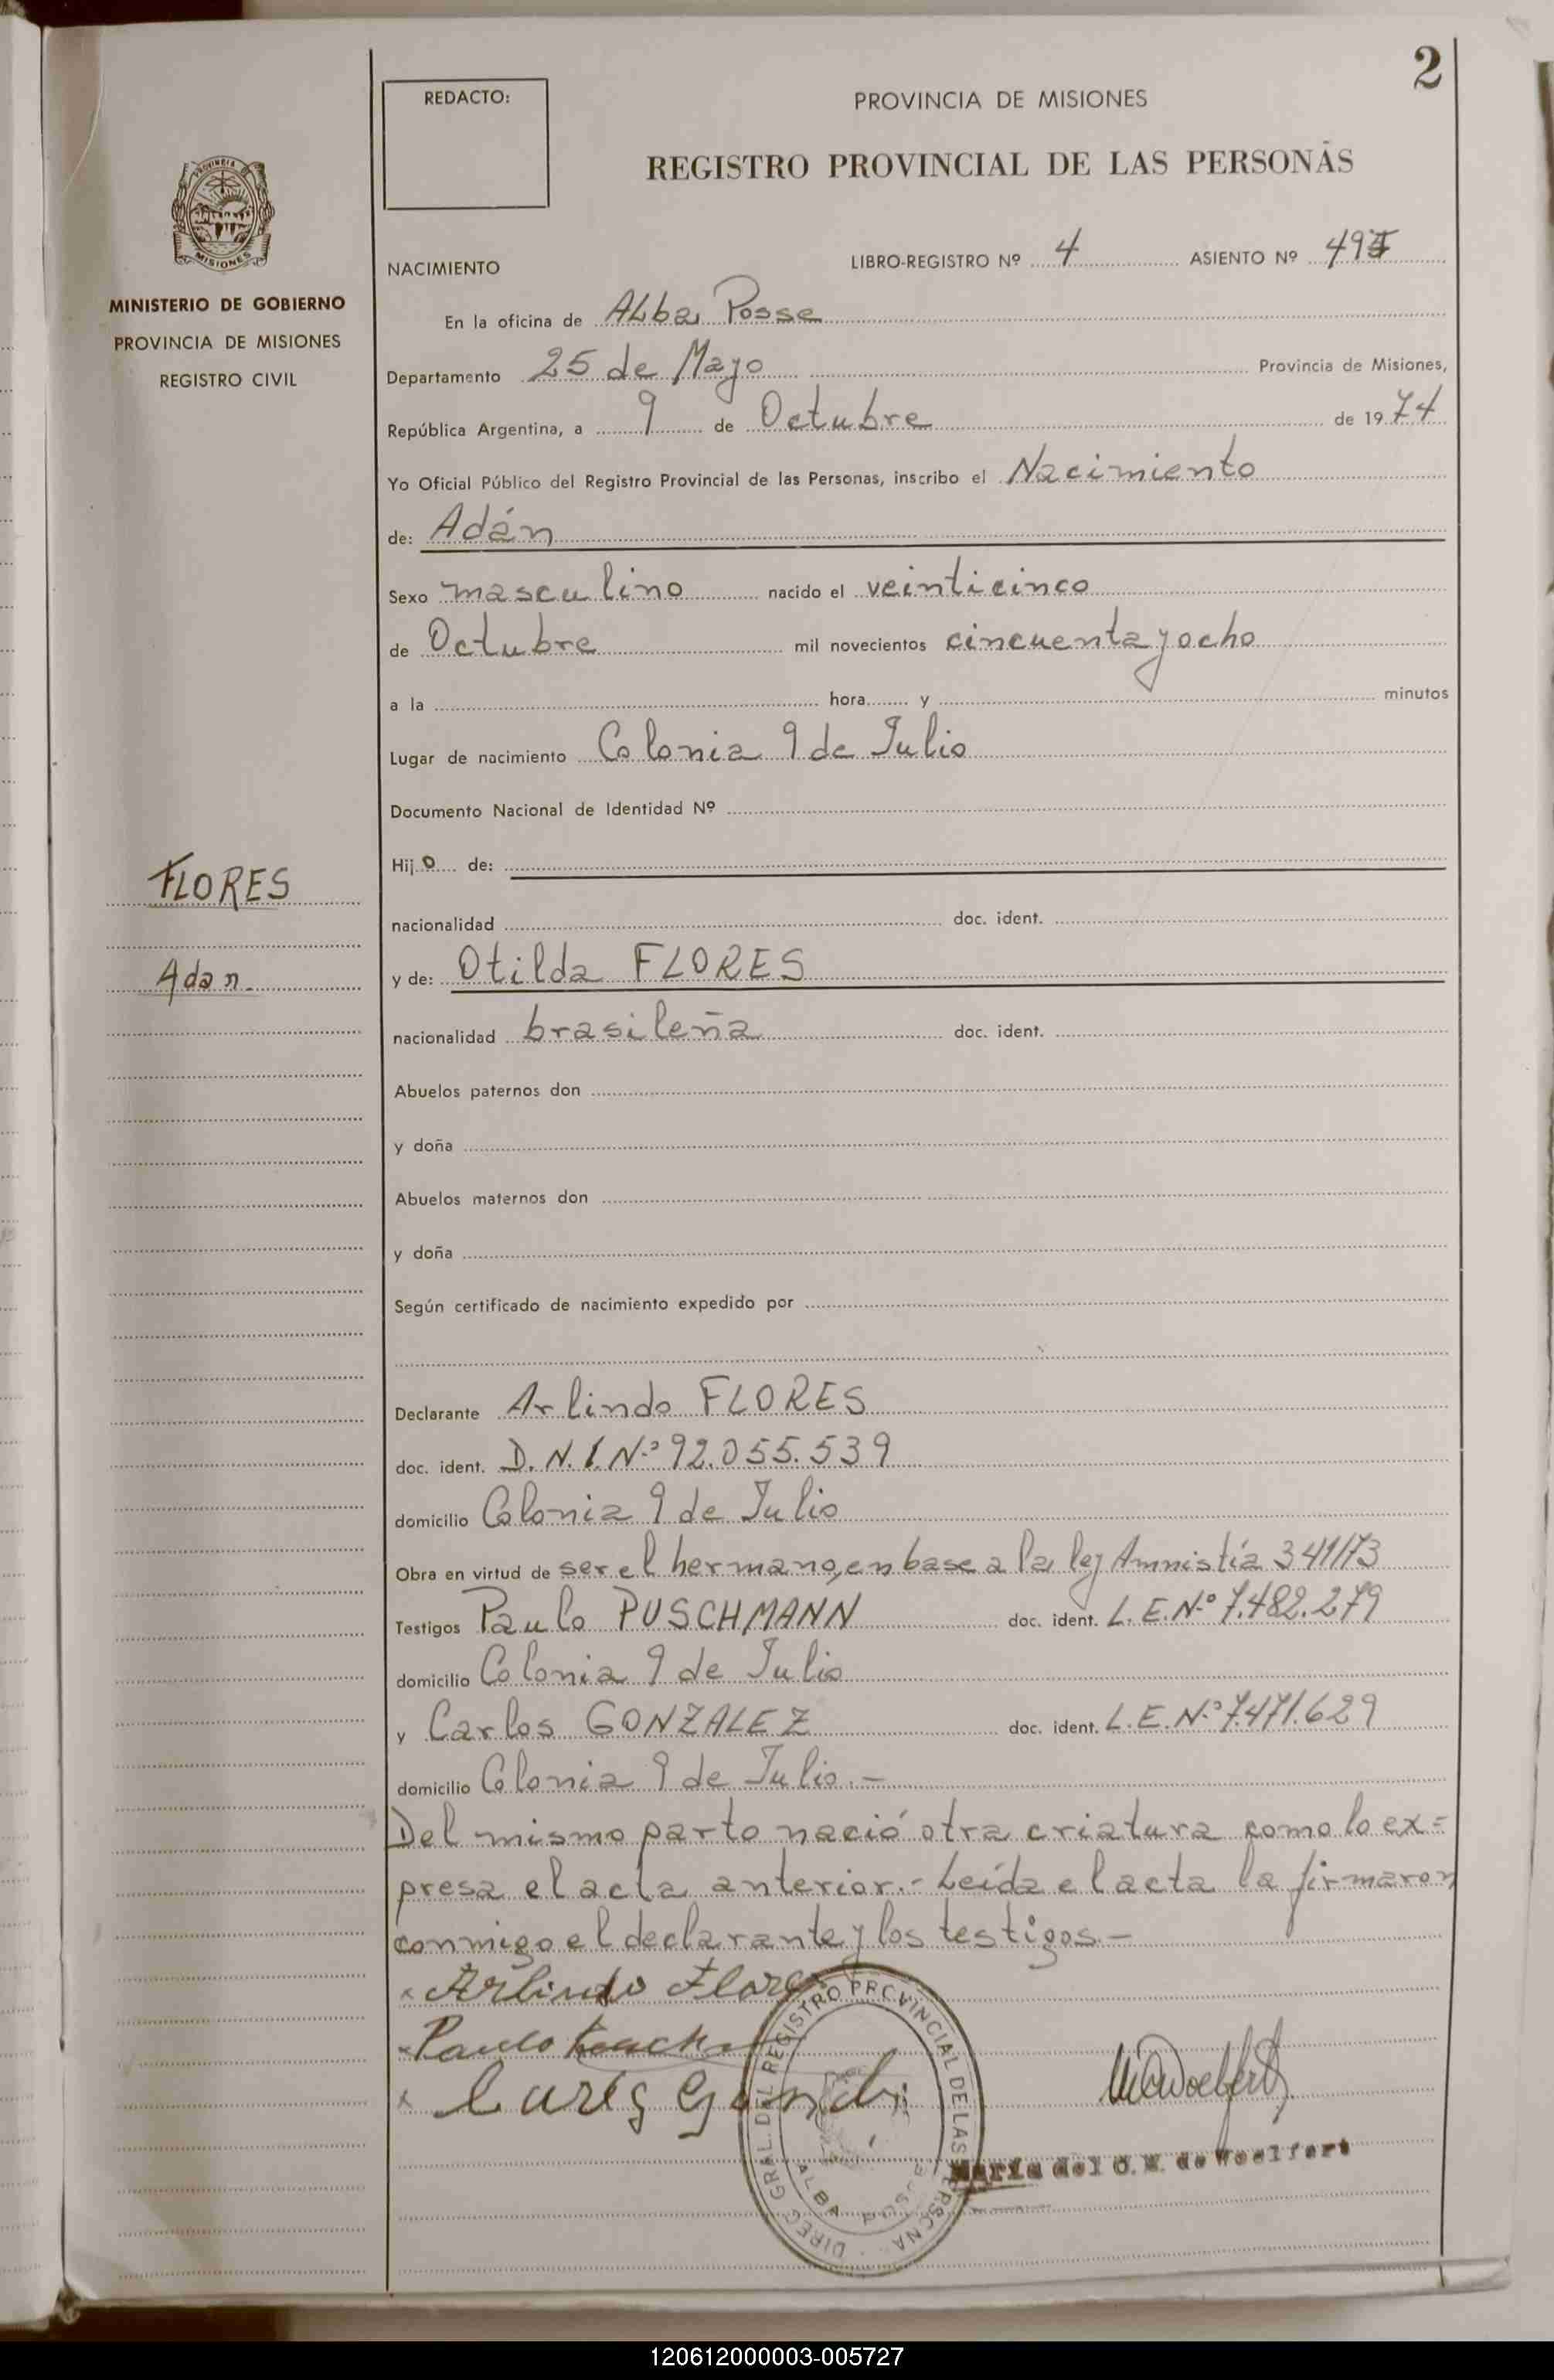 2
REDACTO:
PROVINCIA DE MISIONES
REGISTRO PROVINCIAL DE LAS PERSONAS
PROVINCIA
MISIONES
MINISTERIO DE GOBIERNO
PROVINCIA DE MISIONES
REGISTRO CIVIL
NACIMIENTO
LIBRO-REGISTRO Nº 4 ASIENTO Nº
En la oficina de Alba Posse
Departamento 25 de Mayo Provincia de Misiones,
República Argentina, a 9 de Octubre de 1974
Yo Oficial Público del Registro Provincial de las Personas, inscribo el Nacimiento
de: Adán
Sexo masculino nacido el veinticinco
de Octubre mil novecientos cincuenta y ocho
a la hora y minutos
Lugar de nacimiento Colonia 9 de Julio
Documento Nacional de Identidad Nº
Hijo de:
FLORES
nacionalidad doc. ident.
Adan.
y de: Otilda FLORES
nacionalidad brasileña doc. ident.
Abuelos paternos don
y doña
Abuelos maternos don
y doña
Según certificado de nacimiento expedido por
Declarante Arlindo FLORES
doc. ident. D.N.I. Nº 92.055.539
domicilio Colonia 9 de Julio
Obra en virtud de ser el hermano, en base a la ley Amnistía 341/73
Testigos Paulo PUSCHMANN doc. ident. L.E.Nº 7.482.279
domicilio Colonia 9 de Julio
y Carlos GONZALEZ doc. ident. L.E.Nº 7.471.629
domicilio Colonia 9 de Julio.-
Del mismo parto nació otra criatura como lo ex=
presa el acta anterior.- Leída el acta la firmaron
conmigo el declarante y los testigos.-
x Arlindo Flores
x Paulo
x
DIREC. GRAL. DEL REGISTRO PROVINCIAL DE LAS PERSONA
ALBA POSSE
María del C. W. de Woelfert
120612000003-005727